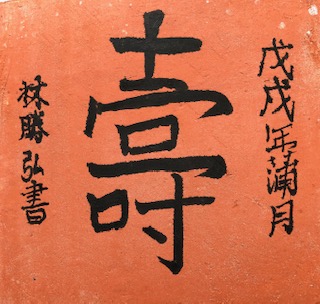 戊戌年蒲月
壽
林勝弘書